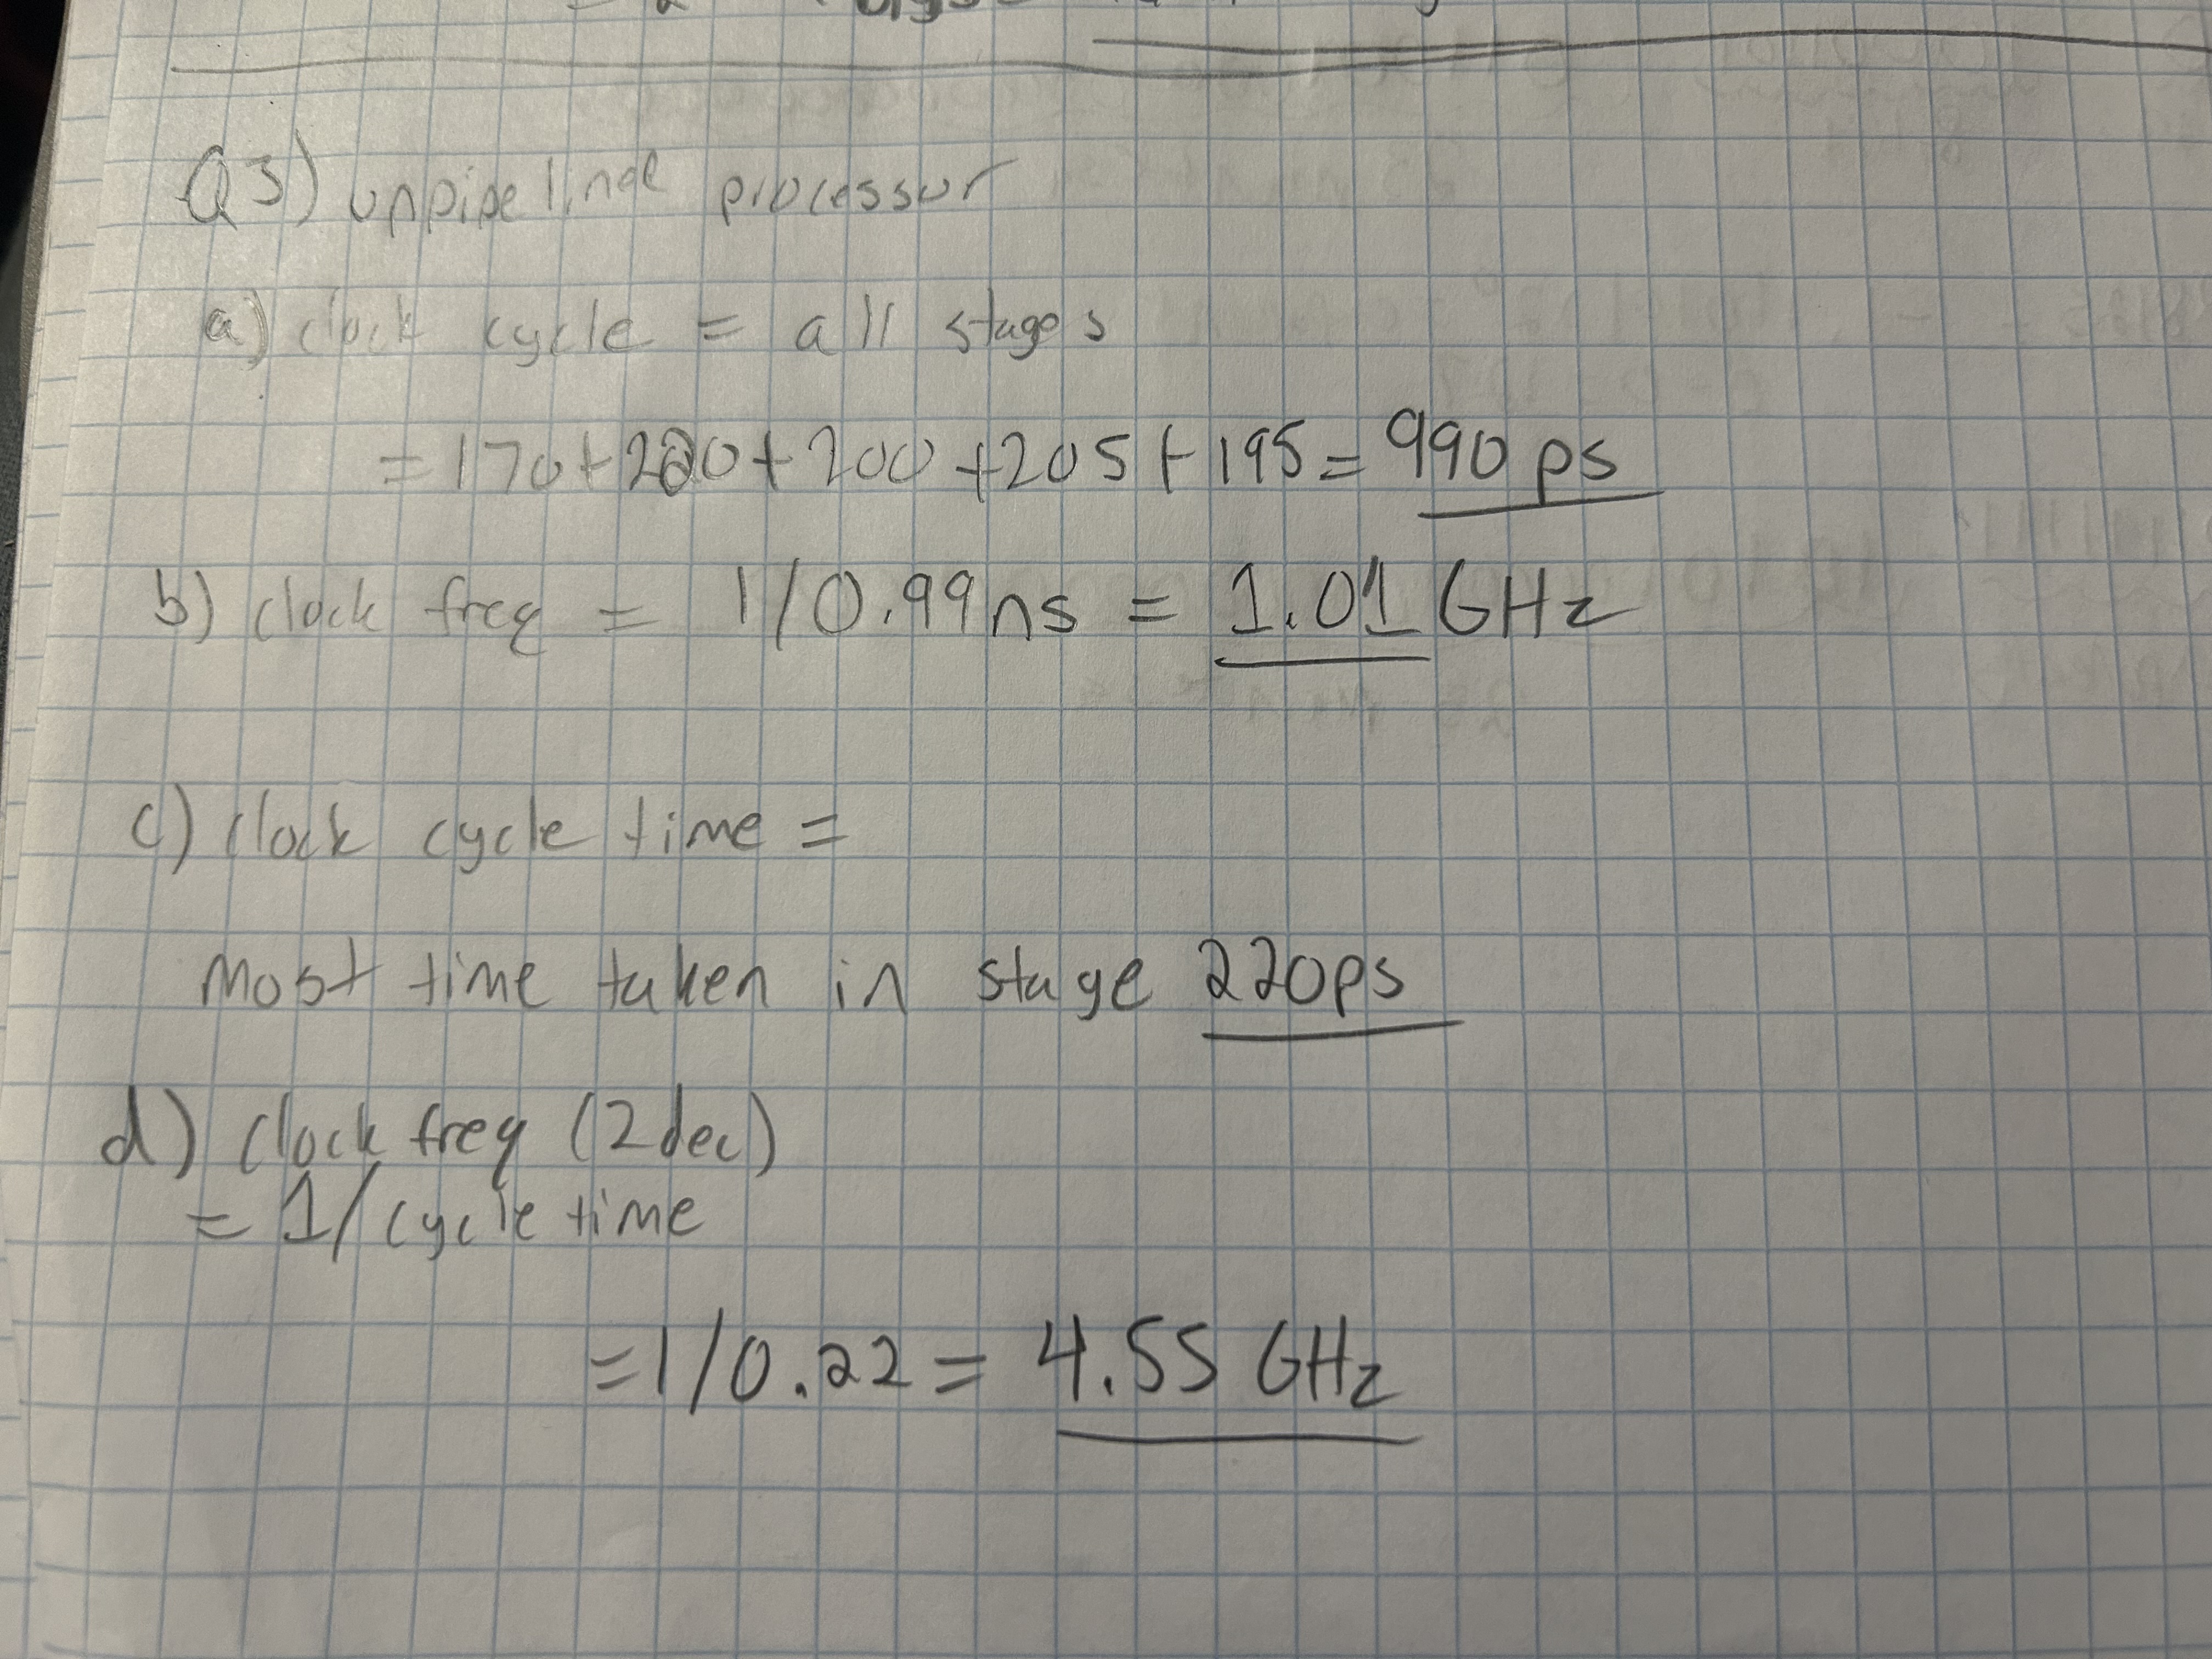 Q3) unpipelined processor
a) clock cycle = all stages
= 170+220+200+205+195= 990 ps
b) clock freq = 1/0.99ns = 1.01 GHz
c) clock cycle time =
most time taken in stage 220ps
d) clock freq (2dec)
= 1/cycle time
= 1/0.22 = 4.55 GHz